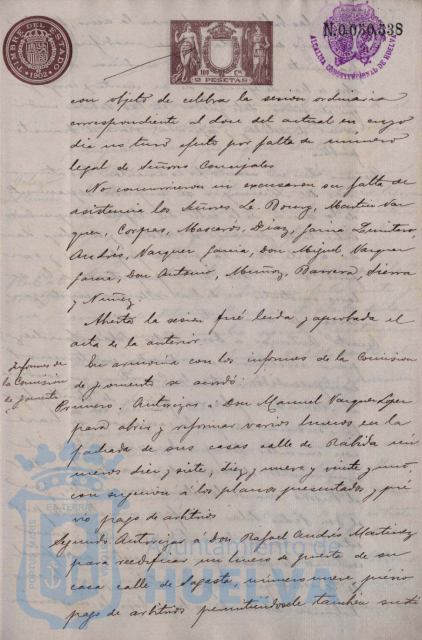 TIMBRE DEL ESTADO
1902
2 PESETAS
N.0.050.538
ALCALDIA CONSTITUCIONAL DE HUELVA
con objeto de celebra la sesión ordinaria
correspondiente al doce del actual en cuyo
dia no tuvo efecto por falta de número
legal de Señores Concejales
No concurrieron ni excusaron su falta de
asistencia los Señores Le Bourg, Martin Vaz
quez, Corpas, Mascarós, Diaz, Garcia Quintero,
Andrés, Vazquez Garcia, Don Miguel, Vazquez
Garcia, Don Antonio, Muñoz, Barrera, Sierra
y Nuñez
Abierta la sesion fué leida y aprobada el
acta de la anterior
Informes de
la Comisión
de fomento
En armonia con los informes de la Comision
de fomento se acordó:
Primero. Autorizar á Don Manuel Vazquez Lopez
para abrir y reformar varios huecos en la
fachada de sus casas calle de Rábida nú
meros diez y siete, diez y nueve y veinte y uno,
con sugecion á los planos presentados y pré
vio pago de arbitrios
Segundo Autorizar á Don Rafael Andrés Martinez
para reedificar un lienzo de frente de su
casa calle de Sagasta, número nueve, previo
pago de arbitrios permitiendosele tambien susti
Ayuntamiento
HUELVA